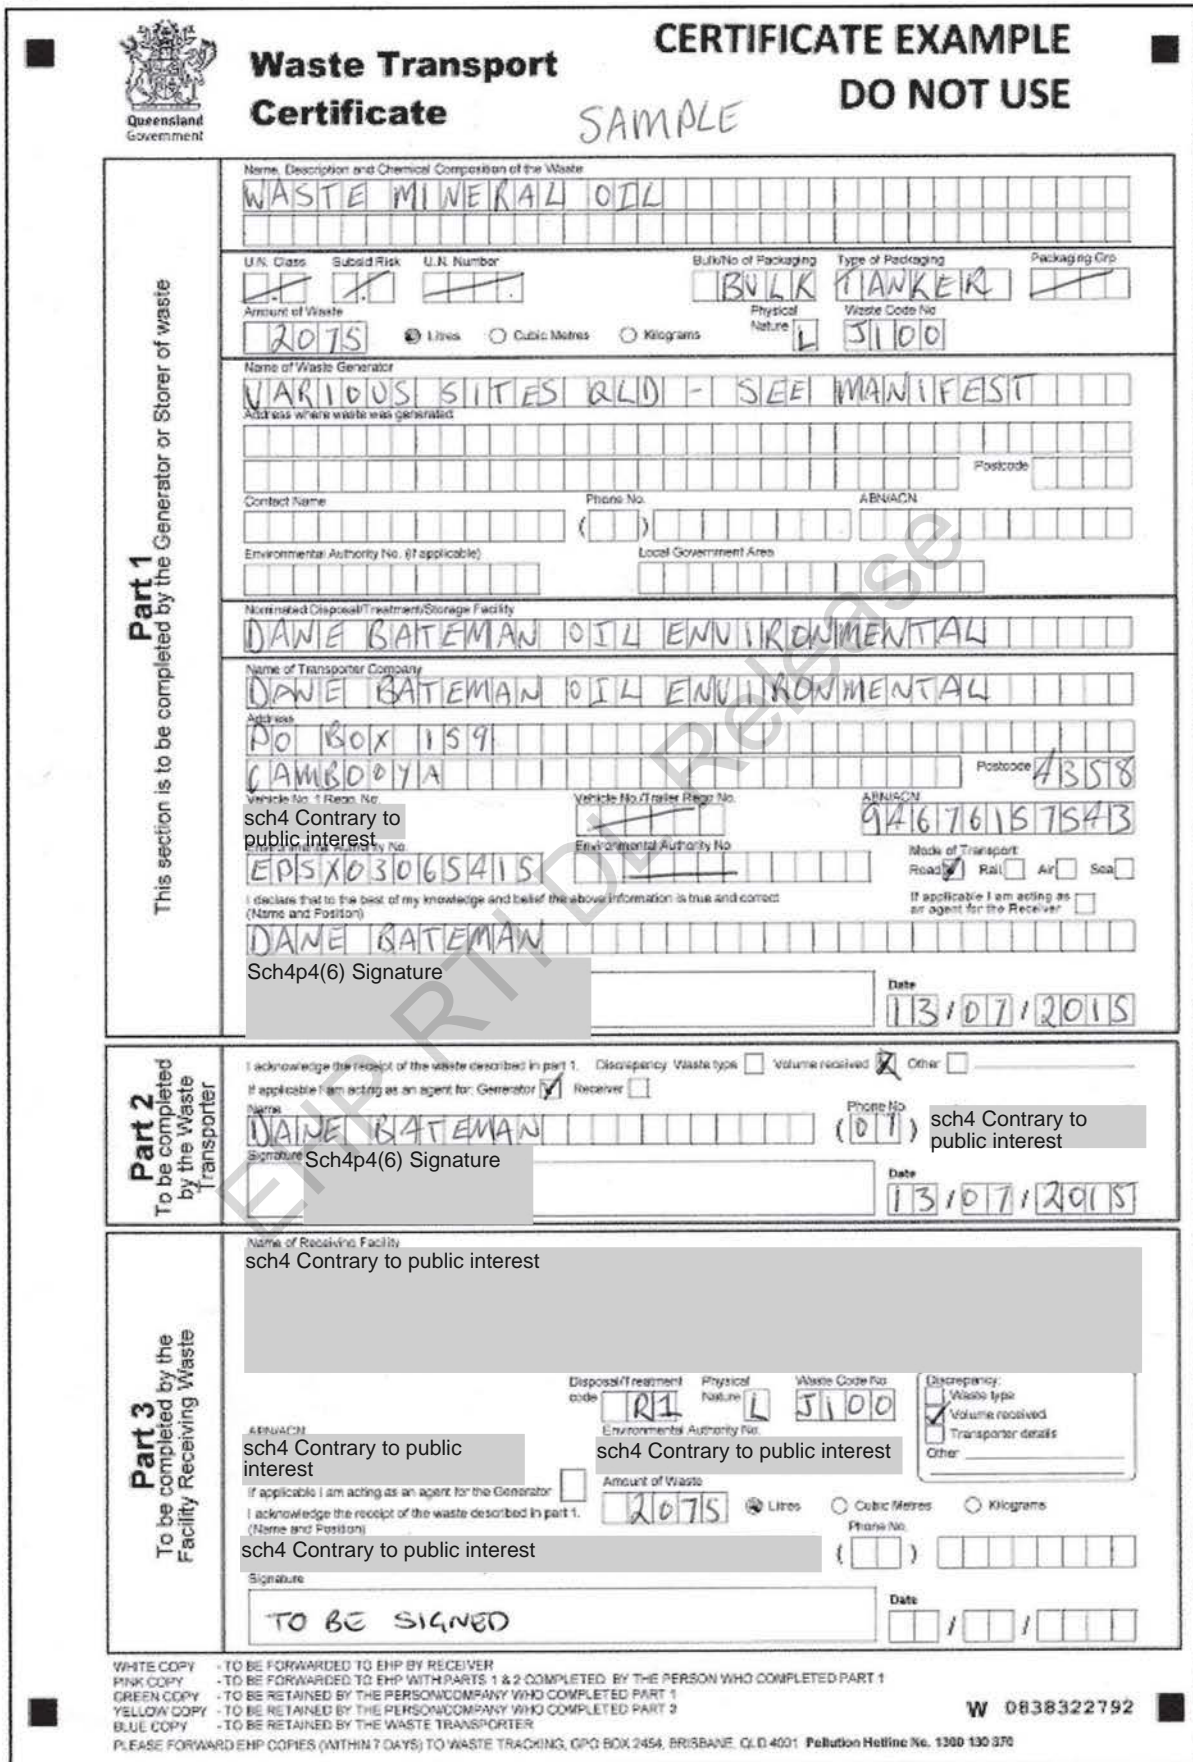 CERTIFICATE EXAMPLE
DO NOT USE
Queensland
Government
Waste Transport
Certificate
SAMPLE
Part 1
This section is to be completed by the Generator or Storer of waste
Name, Description and Chemical Composition of the Waste
WASTE MINERAL OIL
U.N. Class Subsid Risk U.N. Number Bulk/No of Packaging Type of Packaging Packaging Grp
BULK TANKER
Amount of Waste Physical Nature Waste Code No
2075 Litres Cubic Metres Kilograms L J100
Name of Waste Generator
VARIOUS SITES QLD - SEE MANIFEST
Address where waste was generated
Postcode
Contact Name Phone No. ABN/ACN
( )
Environmental Authority No. (if applicable) Local Government Area
Nominated Disposal/Treatment/Storage Facility
DANE BATEMAN OIL ENVIRONMENTAL
Name of Transporter Company
DANE BATEMAN OIL ENVIRONMENTAL
Address
PO BOX 159
CAMBOOYA Postcode 4358
Vehicle No. 1 Rego. No. Vehicle No./Trailer Rego No. ABN/ACN
sch4 Contrary to
public interest
94676157543
Environmental Authority No. Environmental Authority No Mode of Transport
EPSX03065415 Road Rail Air Sea
I declare that to the best of my knowledge and belief the above information is true and correct
(Name and Position)
If applicable I am acting as
an agent for the Receiver
DANE BATEMAN
Sch4p4(6) Signature
Date
13/07/2015
Part 2
To be completed
by the Waste
Transporter
I acknowledge the receipt of the waste described in part 1. Discrepancy: Waste type Volume received Other
If applicable I am acting as an agent for: Generator Receiver
Name Phone No.
DANE BATEMAN (07)
sch4 Contrary to
public interest
Signature
Sch4p4(6) Signature
Date
13/07/2015
Part 3
To be completed by the
Facility Receiving Waste
Name of Receiving Facility
sch4 Contrary to public interest
Disposal/Treatment code R1 Physical Nature L Waste Code No J100
Discrepancy:
Waste type
Volume received
Transporter details
Other
ABN/ACN
sch4 Contrary to public
interest
Environmental Authority No.
sch4 Contrary to public interest
If applicable I am acting as an agent for the Generator
Amount of Waste
2075 Litres Cubic Metres Kilograms
I acknowledge the receipt of the waste described in part 1.
(Name and Position)
Phone No.
sch4 Contrary to public interest
( )
Signature
TO BE SIGNED
Date
/ /
WHITE COPY - TO BE FORWARDED TO EHP BY RECEIVER
PINK COPY - TO BE FORWARDED TO EHP WITH PARTS 1 & 2 COMPLETED BY THE PERSON WHO COMPLETED PART 1
GREEN COPY - TO BE RETAINED BY THE PERSON/COMPANY WHO COMPLETED PART 1
YELLOW COPY - TO BE RETAINED BY THE PERSON/COMPANY WHO COMPLETED PART 3
BLUE COPY - TO BE RETAINED BY THE WASTE TRANSPORTER
W 0838322792
PLEASE FORWARD EHP COPIES (WITHIN 7 DAYS) TO WASTE TRACKING, GPO BOX 2454, BRISBANE, QLD 4001 Pollution Hotline No. 1300 130 370
EHP RTI DL Release